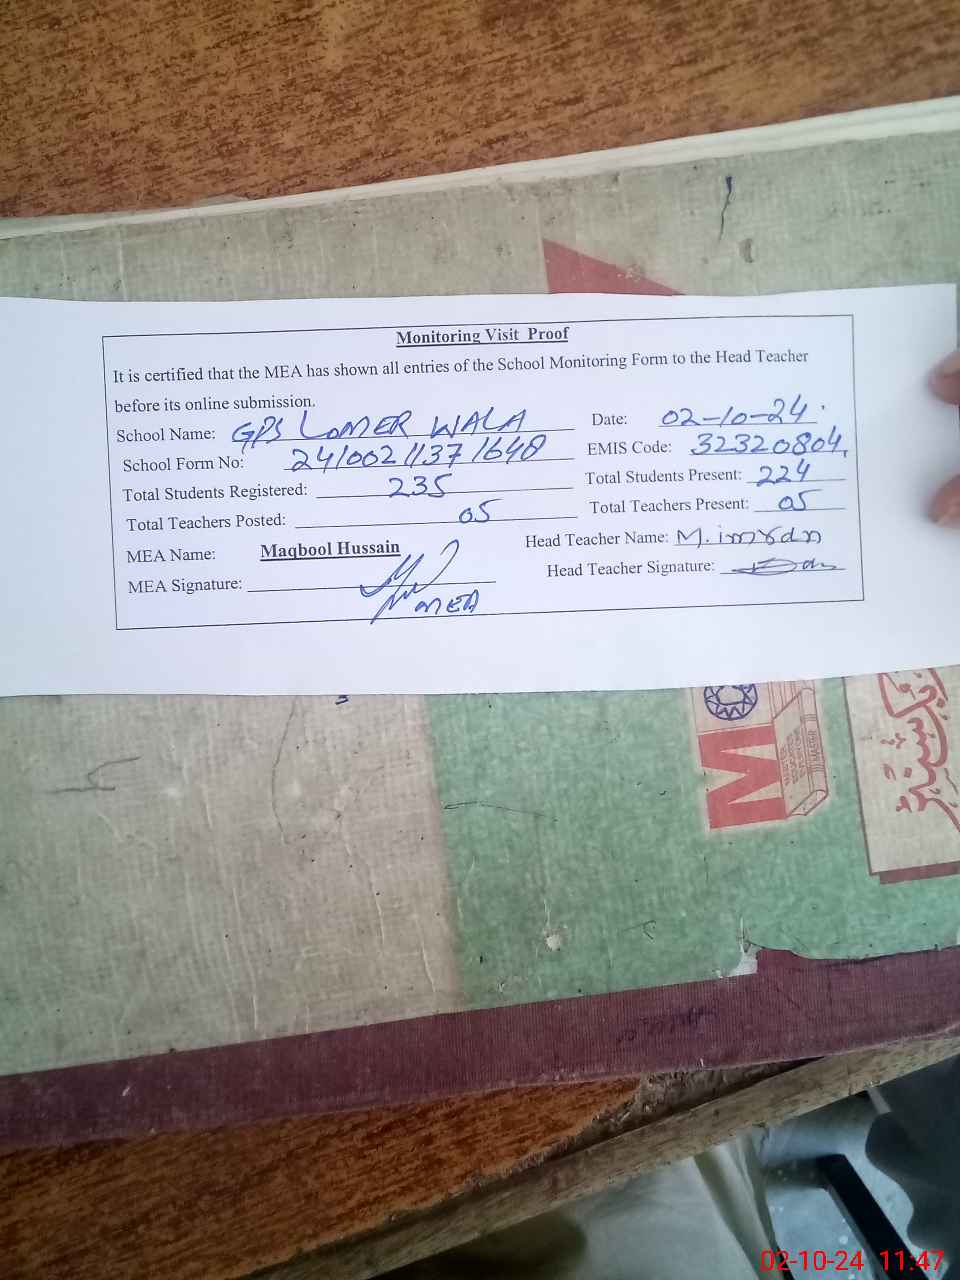 Monitoring Visit Proof
It is certified that the MEA has shown all entries of the School Monitoring Form to the Head Teacher
before its online submission.
School Name: GPS LOMER WALA Date: 02-10-24
School Form No: 24100211371648 EMIS Code: 32320804
Total Students Registered: 235 Total Students Present: 224
Total Teachers Posted: 05 Total Teachers Present: 05
MEA Name: Maqbool Hussain Head Teacher Name: M. imran
MEA Signature: Head Teacher Signature:
MEA
M
02-10-24 11:47